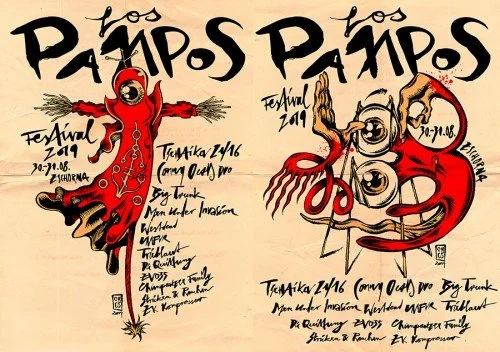 Los
PAMPOS
Festival
2019
30.-31.08.
ZSCHORNA
Tschaika 21/16
Conny Ochs Duo
Big Trunk
Men Under Invasion
Westdead
Trieblaut
Di Quillung
ZVO55
Chimpanzee Family
Stricken & Rauchen
Z.V. Kompressor
Los
PAMPOS
Festival
2019
30.-31.08.
ZSCHORNA
Tschaika 21/16 Conny Ochs Duo Big Trunk
Men Under Invasion Westdead Trieblaut
Di Quillung ZVO55 Chimpanzee Family
Stricken & Rauchen Z.V. Kompressor